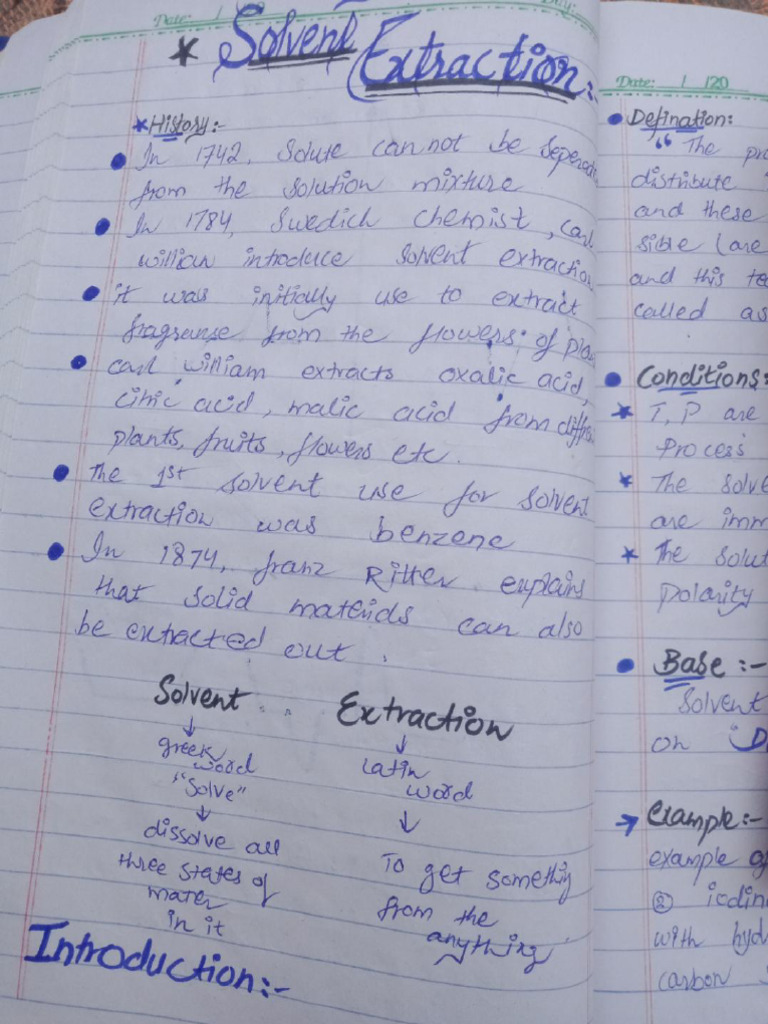 Date: /
Day:
* Solvent
Extraction:-
* History:-
• In 1742, Solute can not be Seperat
from the solution mixture
• In 1784, Swedich chemist, carl
willian introduce solvent extraction
• it was initially use to extract
fragranse from the flowers of pla
• carl william extracts oxalic acid,
citric acid, malic acid from diff
plants, fruits, flowers etc.
• The 1st solvent use for solvent
extraction was benzene
• In 1874, franz Ritter explains
that solid materials can also
be extracted out.
Solvent Extraction
↓ ↓
greek Latin
word word
"Solve" ↓
↓
dissolve all To get something
three states of from the
mater anything
in it
Introduction:-
Date: / /20
• Defination:
" The pro
distribute
and these
sible (are
and this te
called as
• Conditions:
* T, P are
Process
* The solve
are imm
* The solut
polarity
• Base :-
Solvent
on D
→ Example:-
example of
② iodin
with hyd
carbon